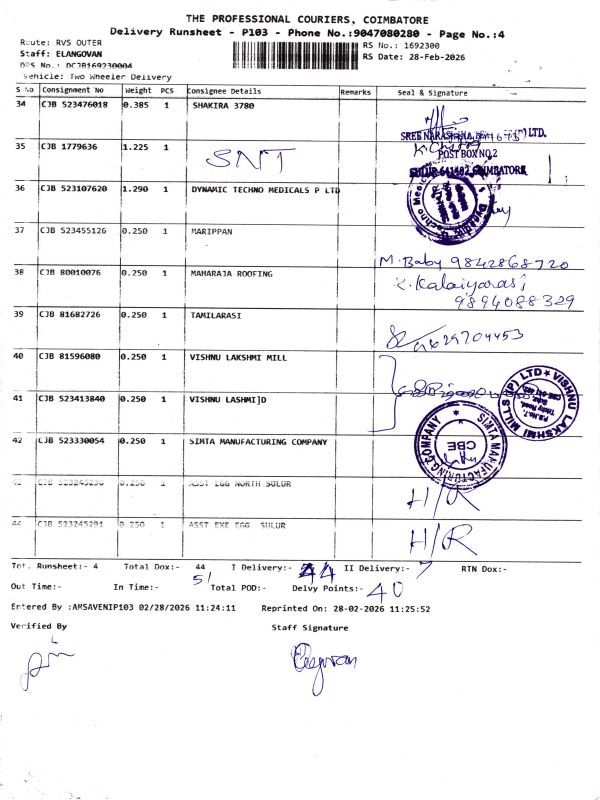 THE PROFESSIONAL COURIERS, COIMBATORE
Delivery Runsheet - P103 - Phone No.:9047080280 - Page No.:4
Route: RVS OUTER
RS No.: 1692300
Staff: ELANGOVAN
RS Date: 28-Feb-2026
DRS No.: DCJB169230004
Vehicle: Two Wheeler Delivery
S No Consignment No Weight PCS Consignee Details Remarks Seal & Signature
34 CJB 523476018 0.385 1 SHAKIRA 3780
35 CJB 1779636 1.225 1 SNT
POST BOX NO.2
SULUR 641402 COIMBATORE
36 CJB 523107620 1.290 1 DYNAMIC TECHNO MEDICALS P LTD
37 CJB 523455126 0.250 1 MARIPPAN
M. Baby 9842868720
38 CJB 80010076 0.250 1 MAHARAJA ROOFING
K. Kalaiyarasi
9894088329
39 CJB 81682726 0.250 1 TAMILARASI
9629704453
40 CJB 81596080 0.250 1 VISHNU LAKSHMI MILL
VISHNU LAKSHMI MILLS (P) LTD
41 CJB 523413840 0.250 1 VISHNU LASHMI]D
42 CJB 523330054 0.250 1 SIMTA MANUFACTURING COMPANY
SIMTA MANUFACTURING COMPANY
CBE
43 CJB 523245230 0.250 1 ASST EGG NORTH SULUR
H/R
44 CJB 523245291 0.250 1 ASST EXE EGG SULUR
H/R
Tot. Runsheet:- 4 Total Dox:- 44 I Delivery:- 44 II Delivery:- RTN Dox:-
51
Out Time:- In Time:- Total POD:- Delvy Points:- 40
Entered By :AMSAVENIP103 02/28/2026 11:24:11 Reprinted On: 28-02-2026 11:25:52
Verified By Staff Signature
Elangovan